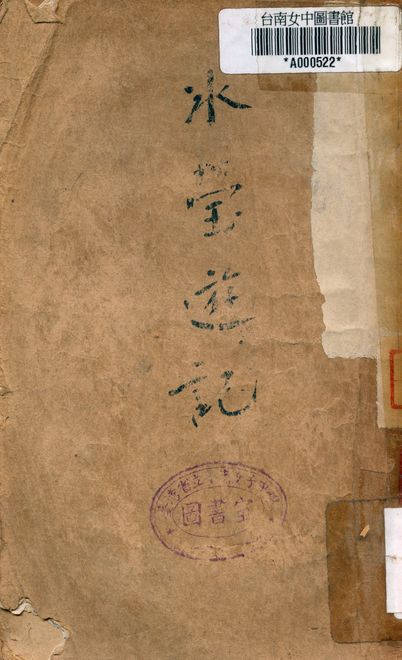 台南女中圖書館
*A000522*
冰瑩遊記
圖書室